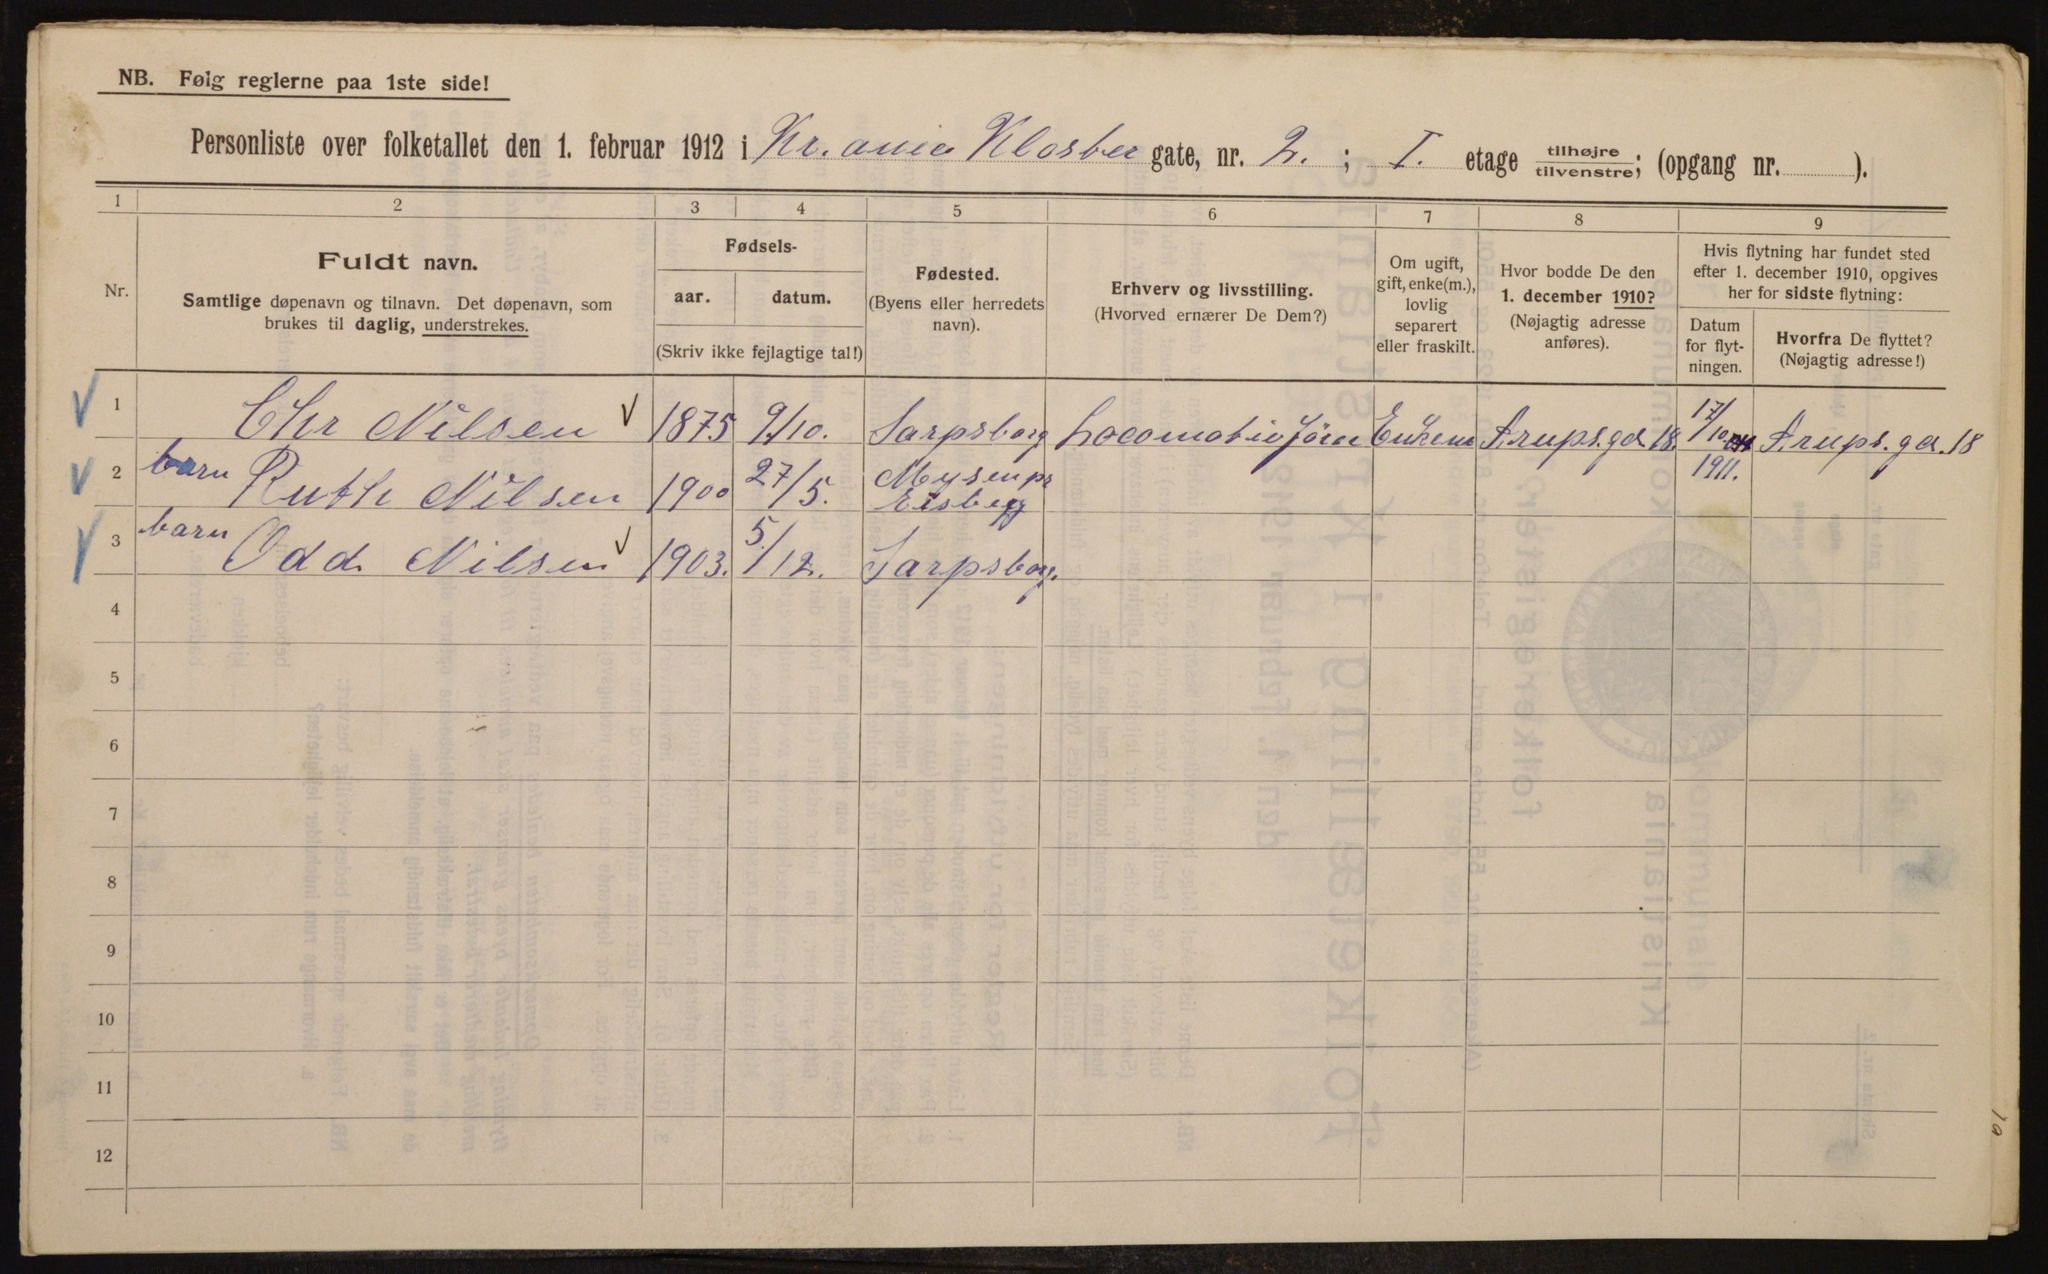 NB. Følg reglerne paa 1ste side!
Personliste over folketallet den 1. februar 1912 i Kr. ania Klosber gate, nr. 2. ; I. etage tilhøjre tilvenstre; (opgang nr. ).
1 2 3 4 5 6 7 8 9
Nr.
Fuldt navn.
Samtlige døpenavn og tilnavn. Det døpenavn, som
brukes til daglig, understrekes.
Fødsels-
aar. datum.
(Skriv ikke fejlagtige tal!)
Fødested.
(Byens eller herredets
navn).
Erhverv og livsstilling.
(Hvorved ernærer De Dem?)
Om ugift,
gift, enke(m.),
lovlig
separert
eller fraskilt.
Hvor bodde De den
1. december 1910?
(Nøjagtig adresse
anføres).
Hvis flytning har fundet sted
efter 1. december 1910, opgives
her for sidste flytning:
Datum
for flyt-
ningen.
Hvorfra De flyttet?
(Nøjagtig adresse!)
1 Chr Nilsen 1875 9/10. Sarpsborg Enkem Arups. gd. 18. 17/10 1911. Arups. gd. 18
2 barn Ruth Nilsen 1900 27/5. Mysen pr Eisberg
3 barn Odd Nilsen 1903. 5/12. Sarpsborg.
4
5
6
7
8
9
10
11
12